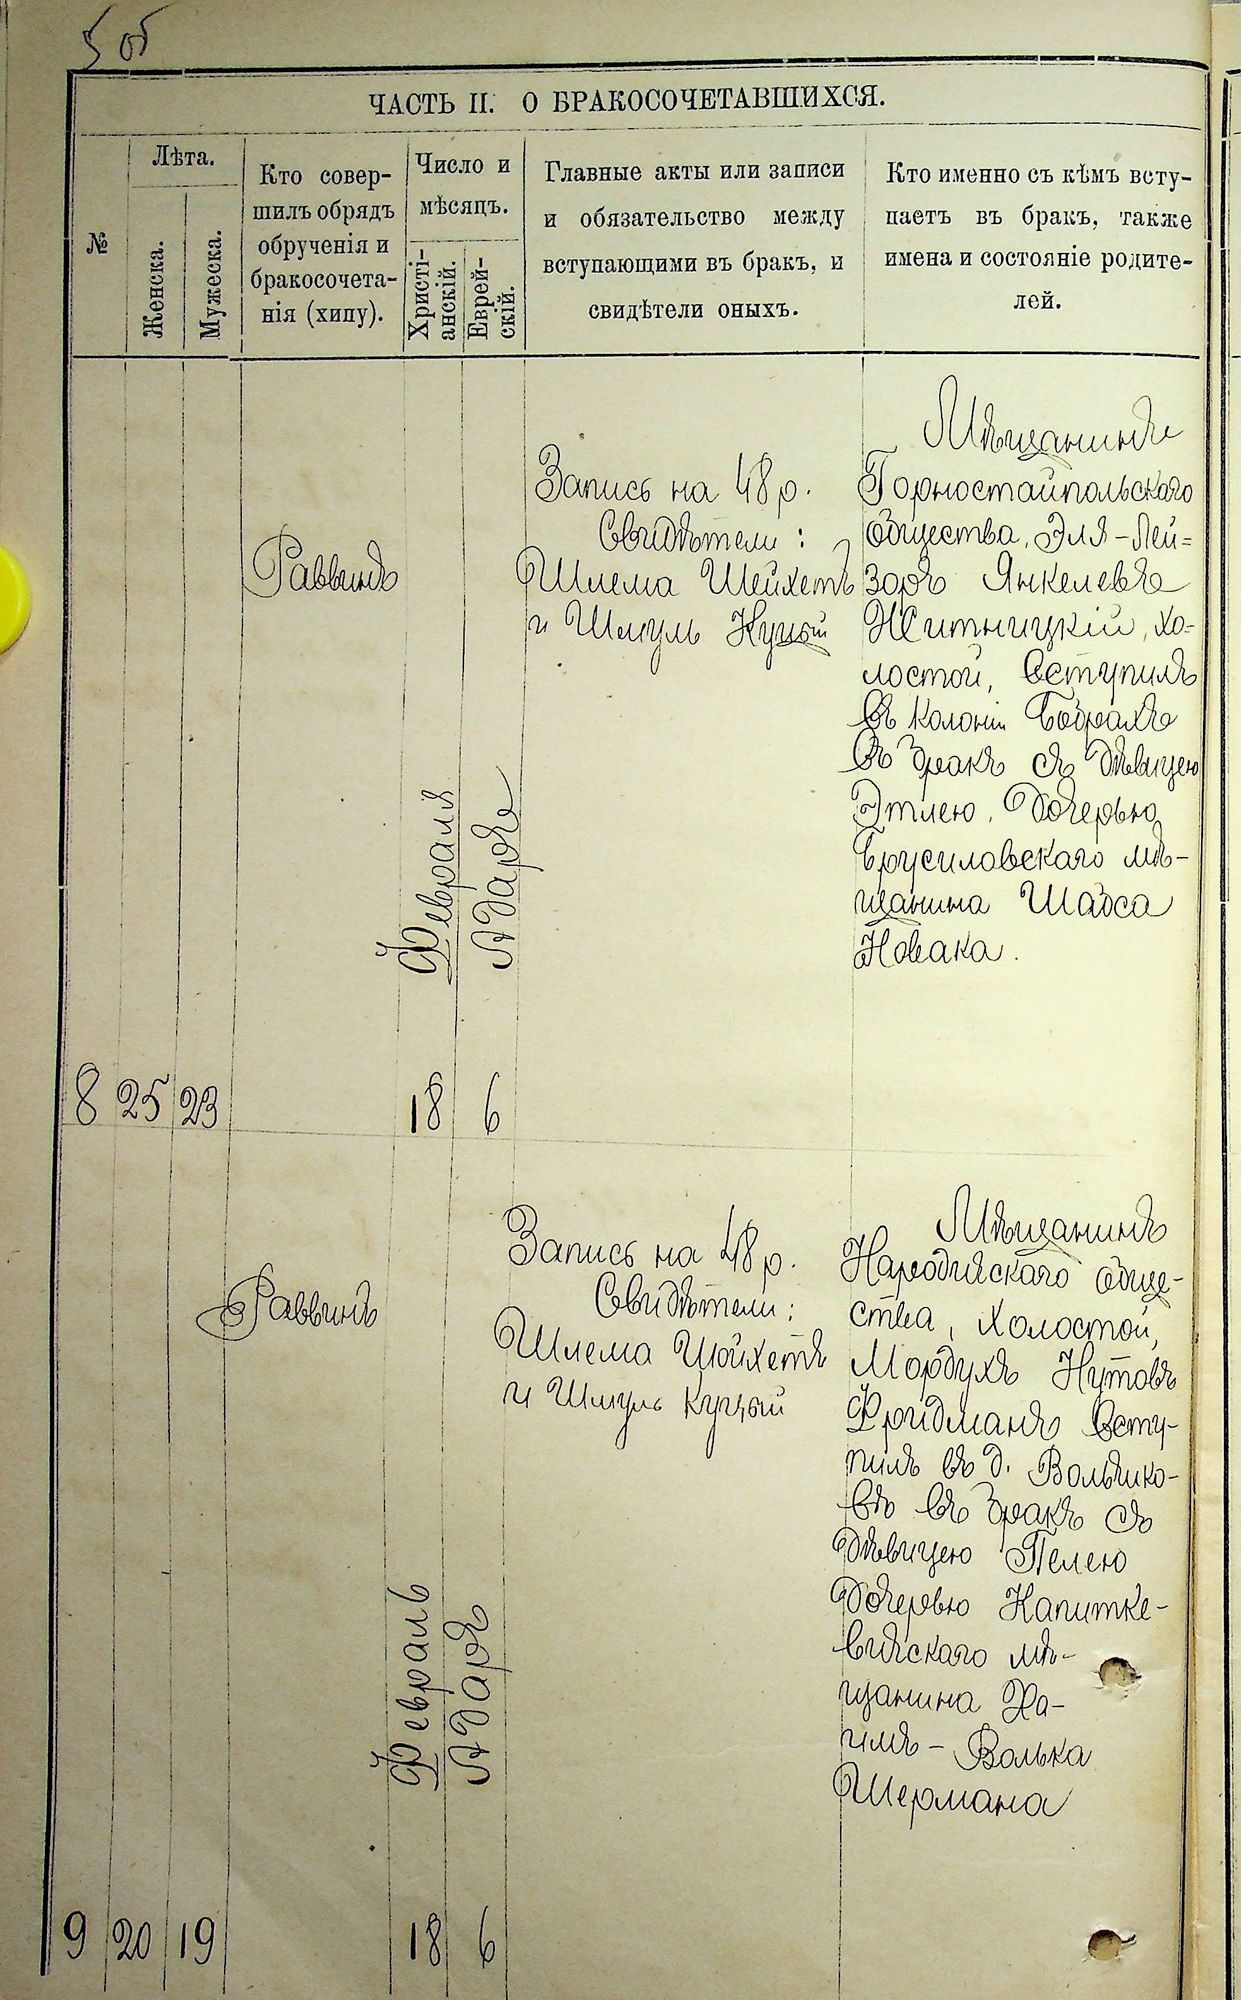 5 об
ЧАСТЬ II. О БРАКОСОЧЕТАВШИХСЯ.
№
Лѣта.
Женска.
Мужеска.
Кто совер-
шилъ обрядъ
обрученія и
бракосочета-
нія (хипу).
Число и
мѣсяцъ.
Христі-
анскій.
Еврей-
скій.
Главные акты или записи
и обязательство между
вступающими въ бракъ, и
свидѣтели оныхъ.
Кто именно съ кѣмъ всту-
паетъ въ бракъ, также
имена и состояніе родите-
лей.
8
25
23
Раввинъ
Февраля
18
Адаръ
6
Запись на 48 р.
Свидѣтели:
Шлема Шейхетъ
и Шмуль Куцый
Мѣщанинъ
Горностайпольскаго
общества, Эля-Лей=
зоръ Янкелевъ
Житницкій, хо-
лостой, вступилъ
въ колоніи
въ бракъ съ дѣвицею
Этлею, дочерью
Брусиловскаго мѣ-
щанина Шабса
Новака.
9
20
19
Раввинъ
Февраль
18
Адаръ
6
Запись на 48 р.
Свидѣтели:
Шлема Шойхетъ
и Шмуль Куцый
Мѣщанинъ
Народичскаго обще-
ства, холостой,
Мордухъ Нутовъ
Фридманъ всту-
пилъ въ д. Волчко-
въ въ бракъ съ
дѣвицею Пелею
дочерью Капитке-
вичскаго мѣ-
щанина Ха-
имъ-Волька
Шермана